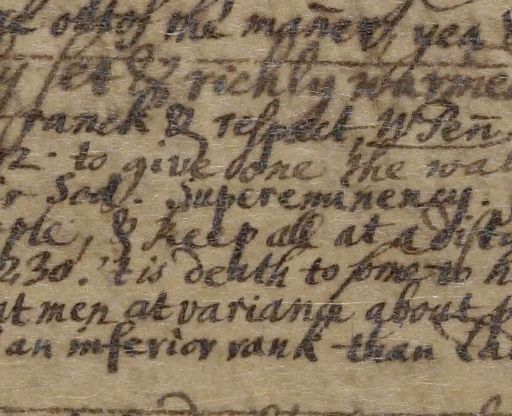 of the mañers yea
set & richly
ranck & respect, W Peñ
92. to give one the wal
Sod. Supereminency.
ple, & keep all at a dista
230. 't is death to some to h
at men at variance about
an inferior rank than